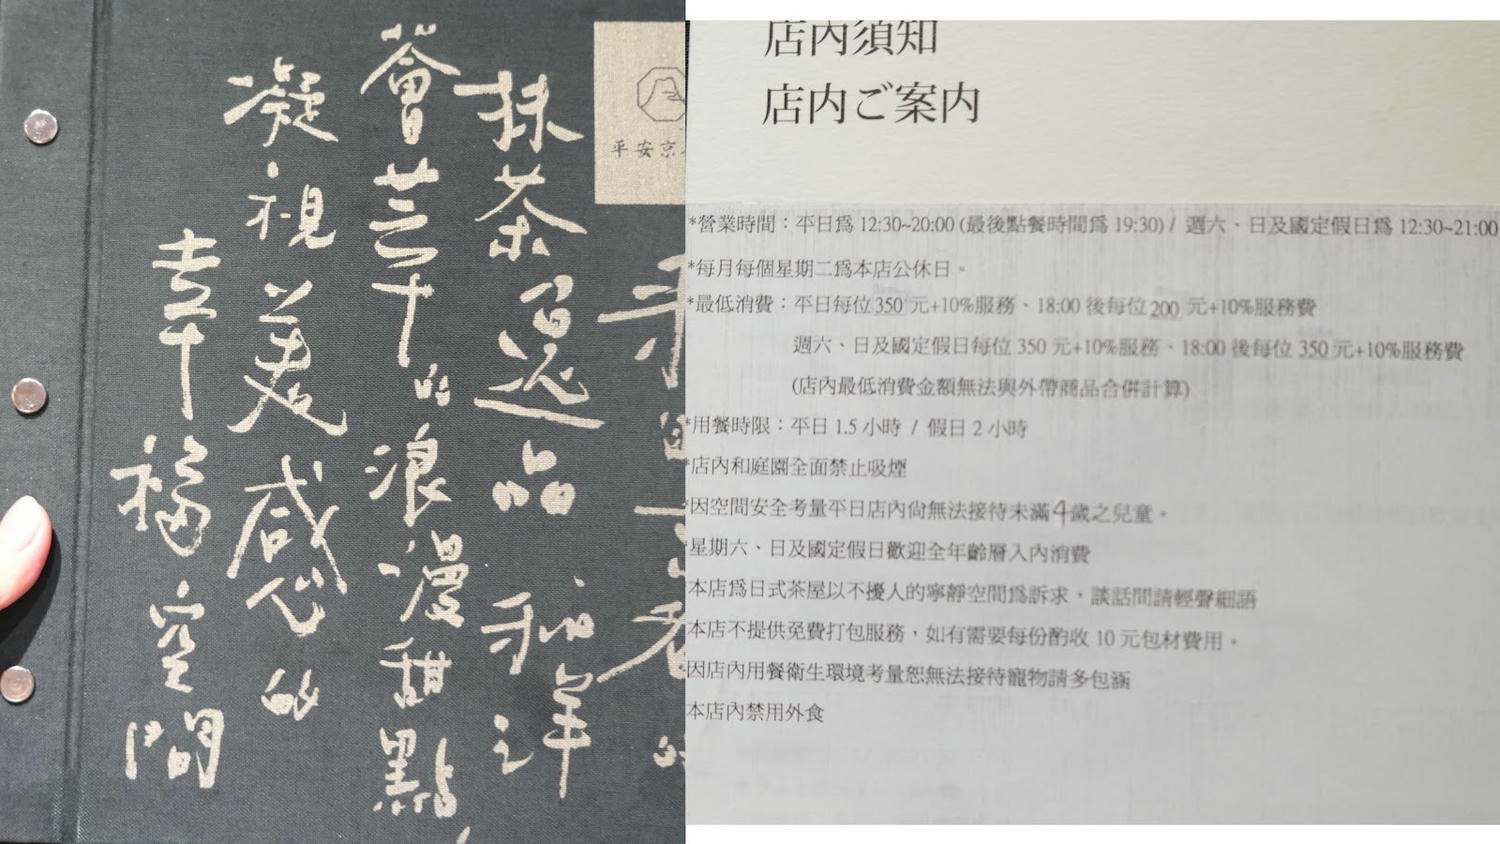 平安京
抹茶逸品
薈萃的浪漫甜點,
凝視美感的
幸福空間
店內須知
店内ご案内
*營業時間：平日為 12:30~20:00 (最後點餐時間為 19:30) / 週六、日及國定假日為 12:30~21:00
*每月每個星期二為本店公休日。
*最低消費：平日每位 350 元+10%服務、18:00 後每位 200 元+10%服務費
週六、日及國定假日每位 350 元+10%服務、18:00 後每位 350 元+10%服務費
(店內最低消費金額無法與外帶商品合併計算)
*用餐時限：平日 1.5 小時 / 假日 2 小時
*店內和庭園全面禁止吸煙
*因空間安全考量平日店內尚無法接待未滿4歲之兒童。
*星期六、日及國定假日歡迎全年齡層入內消費
本店為日式茶屋以不擾人的寧靜空間為訴求，談話間請輕聲細語
本店不提供免費打包服務，如有需要每份酌收 10 元包材費用。
因店內用餐衛生環境考量恕無法接待寵物請多包涵
本店內禁用外食